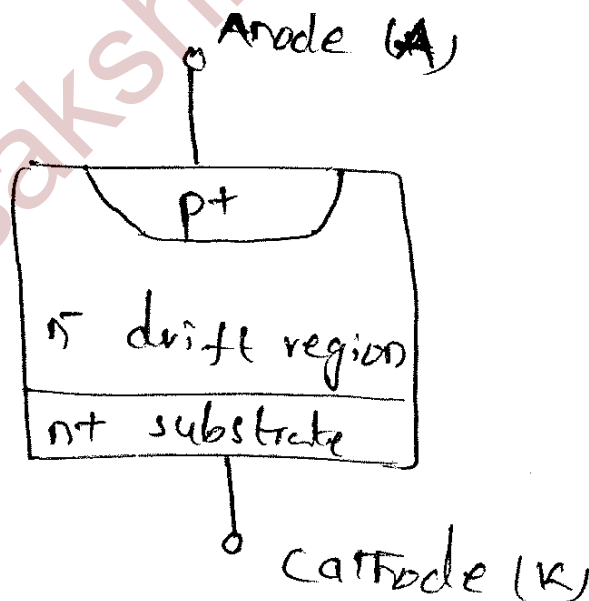 Anode (A)
p+
n- drift region
n+ substrate
Cathode (K)